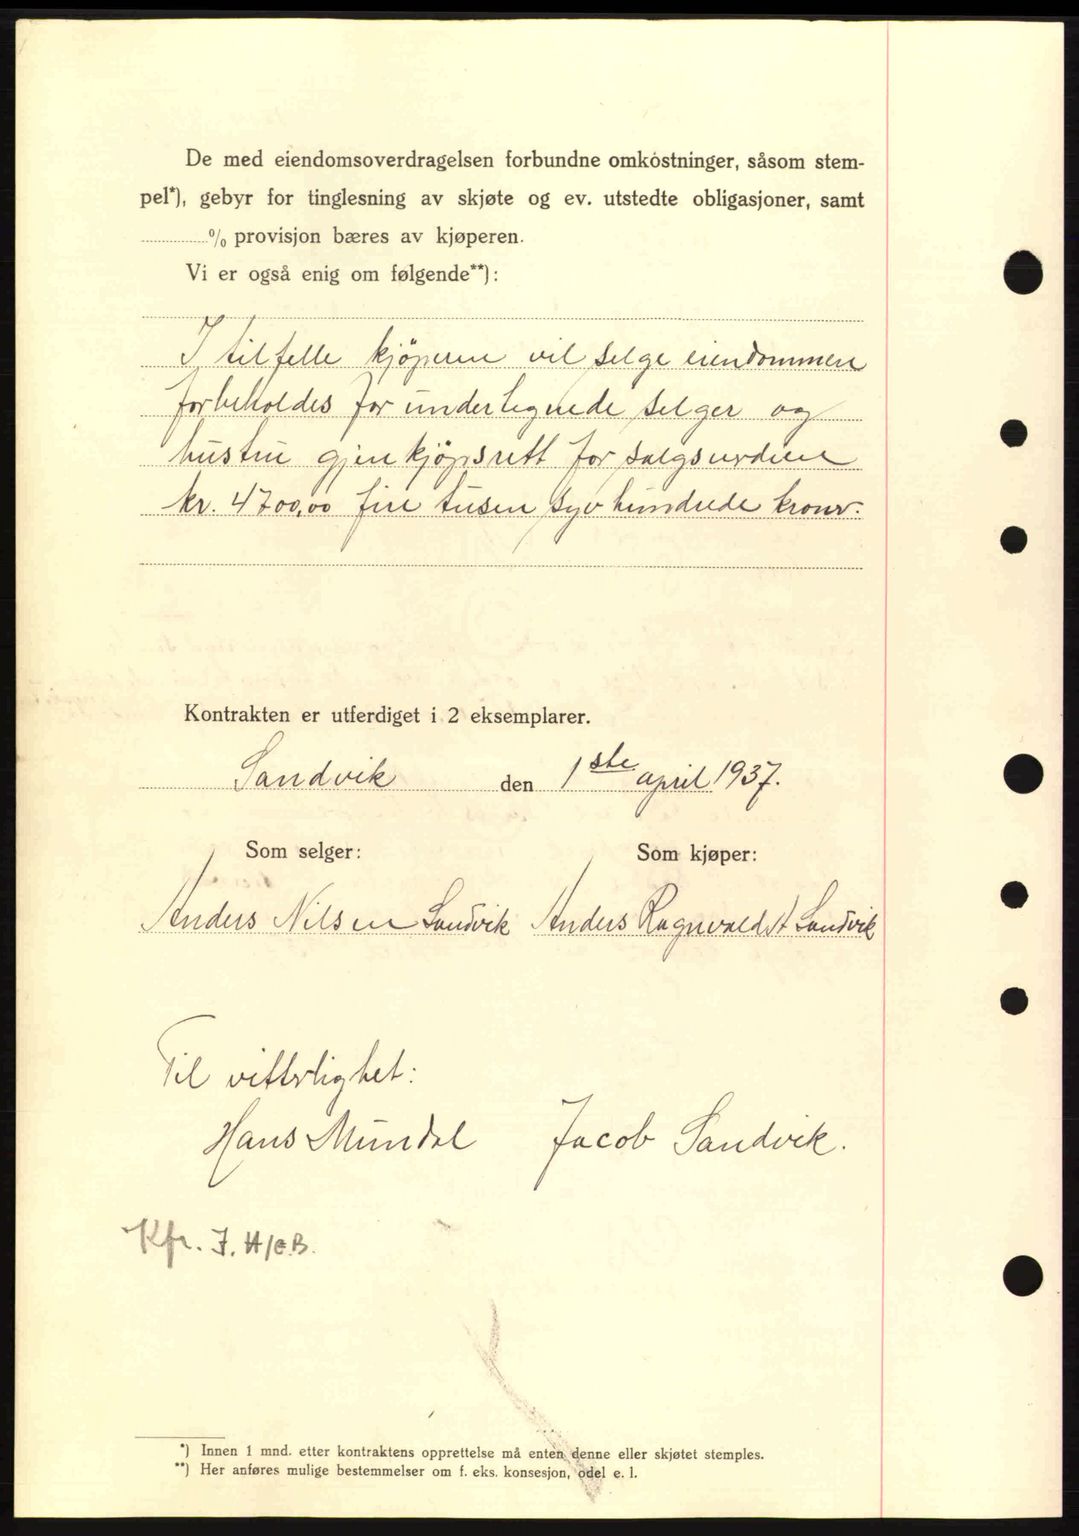 De med eiendomsoverdragelsen forbundne omkostninger, såsom stem-
pel*), gebyr for tinglesning av skjøte og ev. utstedte obligasjoner, samt
............% provisjon bæres av kjøperen.
Vi er også enig om følgende**):
I tilfelle kjöperen vil selge eiendommen
forbeholdes for undertegnede selger og
hustru gjenkjöpsrett for salgsverdien
kr. 4700,00 fire tusen syv hundrede kroner.
Kontrakten er utferdiget i 2 eksemplarer.
Sandvik den 1ste april 1937.
Som selger: Som kjøper:
Anders Nilsen Sandvik Anders Ragnvald A Sandvik
Til vitterlighet:
Hans Mundal Jacob Sandvik.
Kfr. J. H/E.B.
*) Innen 1 mnd. etter kontraktens opprettelse må enten denne eller skjøtet stemples.
**) Her anføres mulige bestemmelser om f. eks. konsesjon, odel e. l.